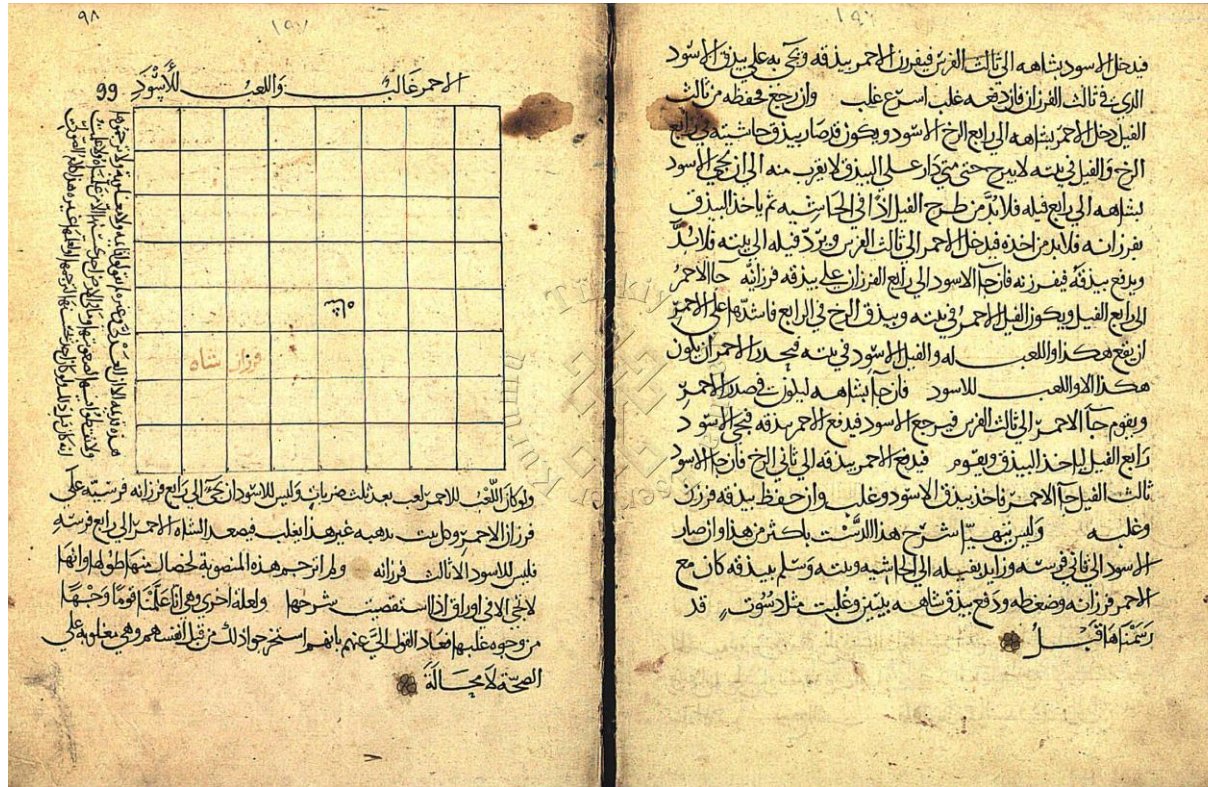 ١٩٦
فيدخل الاسود بشاهه الى ثالث الفرس فيفرزن الاحمر بيذقه ويجى به على بيذق الاسود
الذى فى ثالث الفرزان فان دفعه غلب اسرع غلب وان رجع فحفظه من ثالث
الفيل دخل الاحمر بشاهه الى رابع الرخ الاسود ويكون قد صار بيذق حاشيته فى رابع
الرخ والفيل فى بيته لا يبرح حتى متى دار على البيذق لا يقرب منه الى ان يجى الاسود
بشاهه الى رابع فيله فلا بد من طرح الفيل اذا فى الحاشيه ثم ياخذ البيذق
بفرزانه فلا بد من اخذه فيدخل الاحمر الى ثالث الفرس ويرد فيله الى بيته فلا بد
ويدفع بيذقه فيفرزنه فان جا الاسود الى رابع الفرزان على بيذقه فرزانه جا الاحمر
الى رابع الفيل ويكون الفيل الاحمر فى بيته وبيذق الرخ فى الرابع فاشدها على الاحمر
ان يقع هكذا واللعب له والفيل الاسود فى بيته فيحذر الاحمر ان يكون
هكذا الا واللعب للاسود فان جا بشاهه ليلوث فى صدر الاحمر
ويقوم جا الاحمر الى ثالث الفرس فيرجع الاسود فيدفع الاحمر بيذقه فيجى الاسود
رابع الفيل لياخذ البيذق ويقوم فيدفع الاحمر بيذقه الى ثانى الرخ فان جا الاسود
ثالث الفيل جا الاحمر فاخذ بيذق الاسود وغلب وان حفظ بيذقه فرزن
وغلبه وليس يتهيا شرح هذا الدست باكثر من هذا وان صار
الاسود الى ثانى فرسه وزايد بفيله الى الحاشيه وبيته وسلم بيذقه كان مع
الاحمر فرزانه وضغطه ودفع بيذق شاهه بيتين وغلبت مثل دسوت قد
رسمناها قبل
٩٨
١٩٧
99
الاحمر غالب واللعب للأسود
شاه
فرزان شاه
هذه قديمه الا ان العدلى وغيره لم يقولوا قايمه ولا مغلوبه ولا ترجموها
ولو كان اللعب للاحمر لعب بعد ثلث ضربات وليس للاسود ان يجى الى رابع فرزانه فرسيته على
فرزان الاحمر وكل بيت يذهبه غير هذا يغلب فيصعد الشاه الاحمر الى رابع فرسه
فليس للاسود الا ثالث فرزانه ولم اترجم هذه المنصوبة لخصال منها طولها وانها
لا تجى الا فى اوراق اذا استقصيت شرحها ولعلة اخرى وهى انا علمنا قوما وجها
من وجوه غلبها فعاد القول الى عنهم بانهم استخرجوا ذلك من قبل انفسهم وهى مغلوبة على
الصحة لا محالة